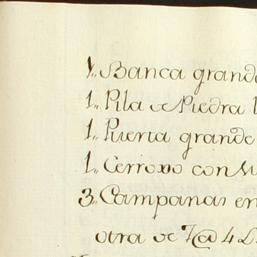 1,, Banca grand
1,, Pila de Piedra
1,, Puerta grande
1,, Cerroxo con
3,, Campanas en
otra de 7@ 4 L